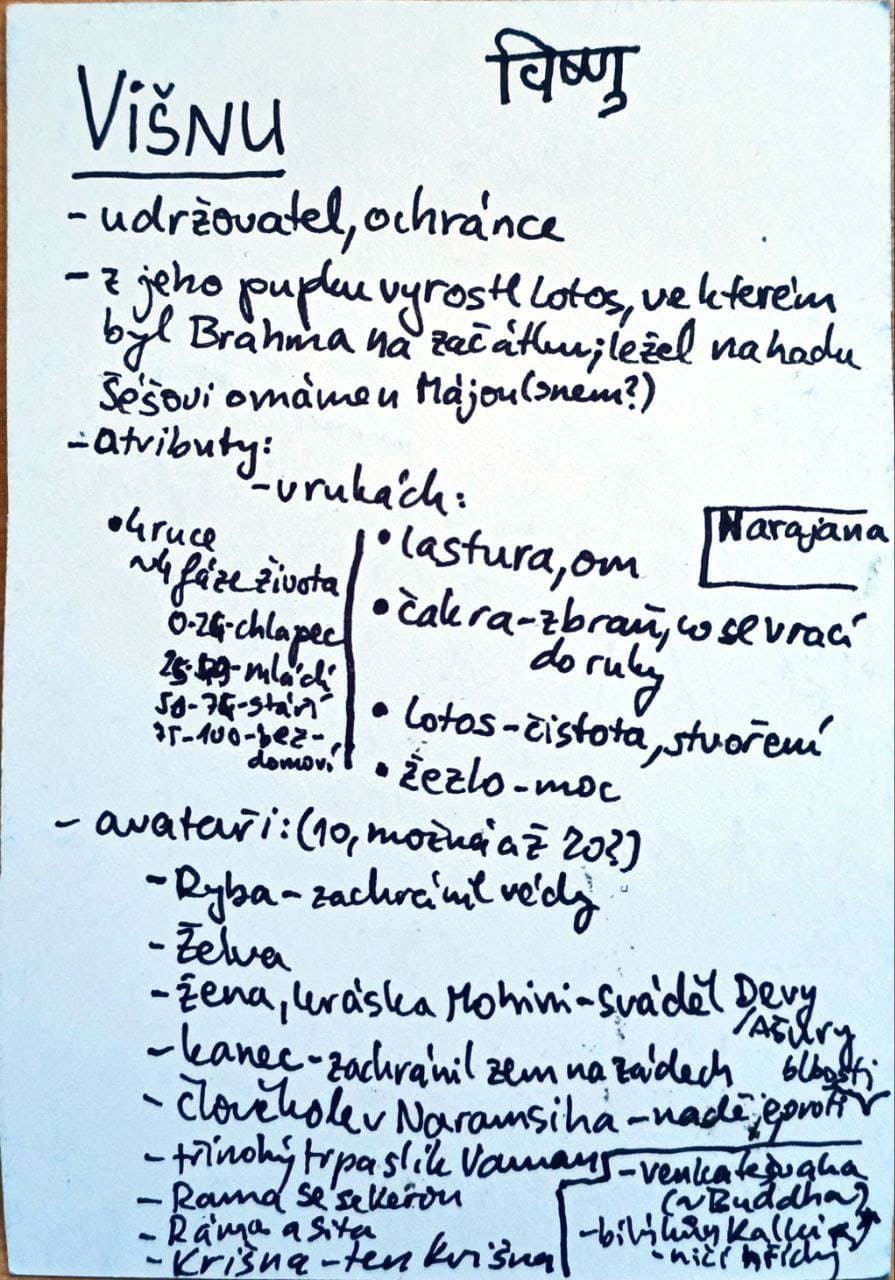 विष्णु
Višnu
- udržovatel, ochránce
- z jeho pupku vyrostl lotos, ve kterém
byl Brahma na začátku; ležel na hadu
Šéšovi omámen Májou (snem?)
- atributy:
- v rukách:
• 4 ruce
~4 fáze života
0-25-chlapec
mládí
50-75-stáří
75-100-bez-
domoví
• lastura, om
• čakra - zbraň, co se vrací
do ruky
• lotos - čistota, stvoření
• žezlo - moc
Narajana
- avataři: (10, možná až 20?)
- Ryba - zachránil védy
- Želva
- žena, kráska Mohini - sváděl Devy
/Ašury
- kanec - zachránil zem na zádech
- člověkolev Naramsiha - naděje proti
blbosti
- třínohý trpaslík Vamana
- Rama se sekerou
- Ráma a Sita
- Krišna - ten Krišna
- venkatešvaha
(~Buddha)
- bílý kůň Kalki
- ničí hříchy